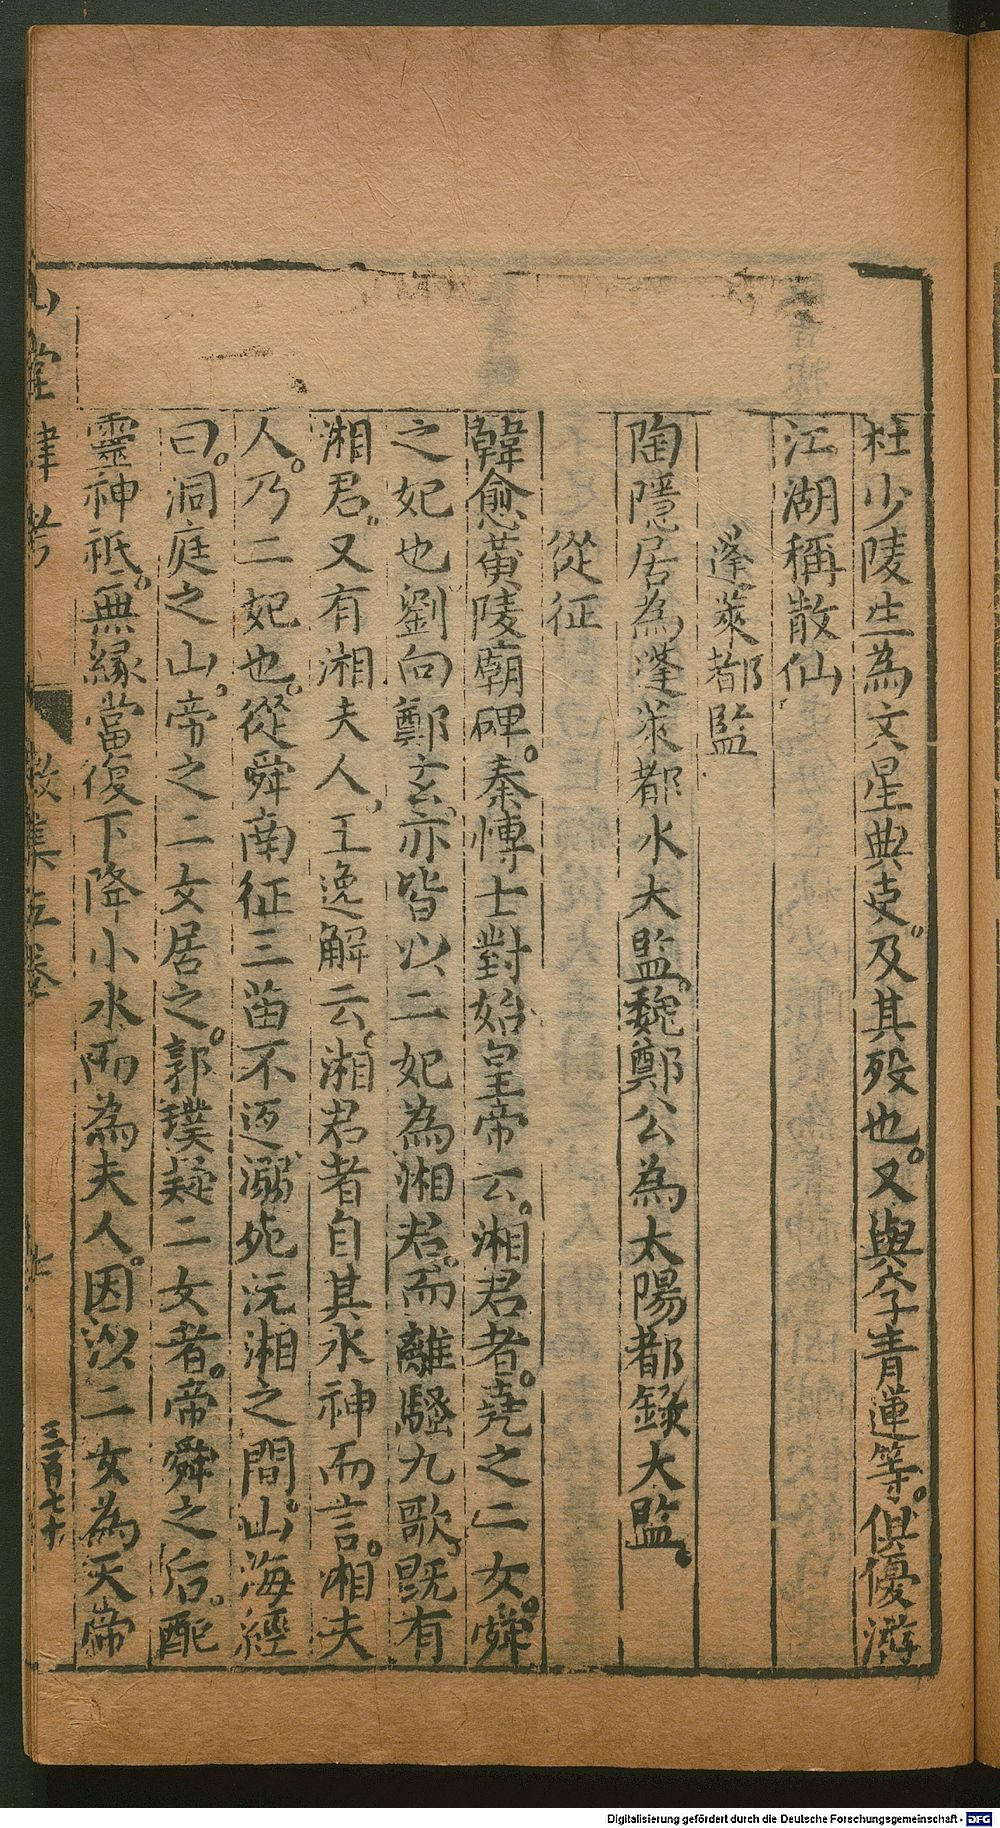 杜少陵生為文星典吏及其歿也。又與李青蓮等。俱優游
江湖稱散仙
蓬萊都監
陶隱居為蓬萊都水大監。魏鄭公為太陽都錄大監。
從征
韓愈黃陵廟碑。秦博士對始皇帝云。湘君者。堯之二女。舜
之妃也劉向鄭玄。亦皆以二妃為湘君。而離騷九歌。既有
湘君。又有湘夫人。王逸解云。湘君者自其水神而言。湘夫
人。乃二妃也。從舜南征三苗不返溺死沅湘之間。山海經
曰。洞庭之山。帝之二女居之。郭璞疑二女者。帝舜之后。配
靈神祇。無緣當復下降小水而為夫人。因以二女為天帝
山堂肆考
徵集五卷
七
三百七十
Digitalisierung gefördert durch die Deutsche Forschungsgemeinschaft - DFG